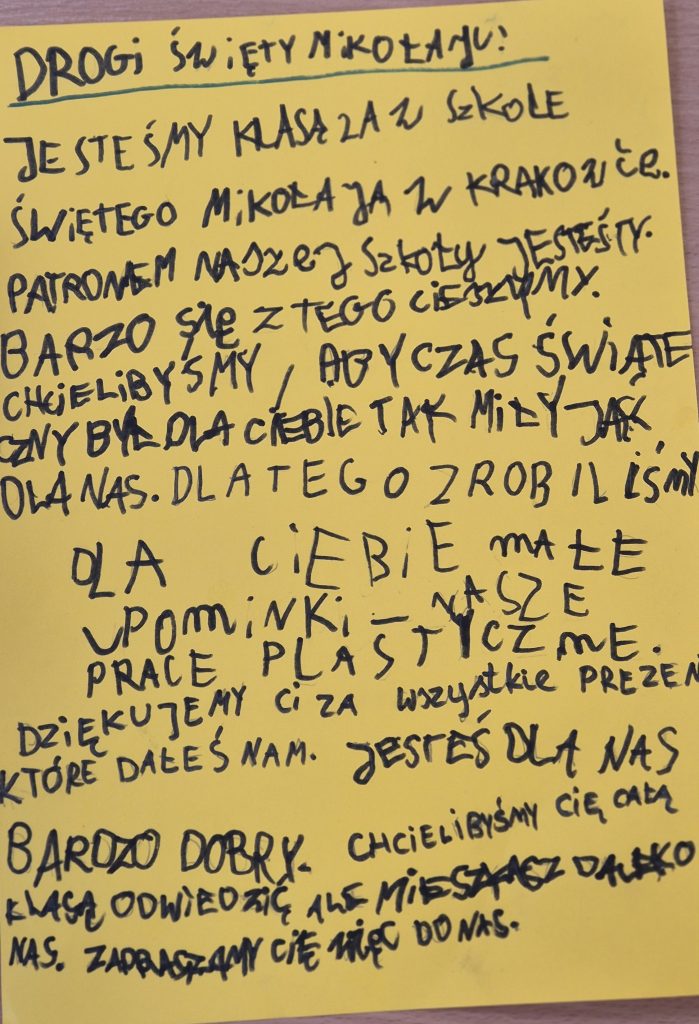 DROGI ŚWIĘTY MIKOŁAJU!
JESTEŚMY KLASĄ ZA W SZKOLE
ŚWIĘTEGO MIKOŁAJA W KRAKOWIE.
PATRONEM NASZEJ SZKOŁY JESTEŚTY.
BARZO SIĘ Z TEGO CIESZYMY.
CHCIELIBYŚMY, ABY CZAS ŚWIĄTE
CZNY BYŁ DLA CIEBIE TAK MIŁY JAK
DLA NAS. DLATEGO ZROBILIŚMY
DLA CIEBIE MAŁE
UPOMINKI – NASZE
PRACE PLASTYCZNE.
DZIĘKUJEMY CI ZA WSZYSTKIE PREZEN
KTÓRE DAŁEŚ NAM. JESTEŚ DLA NAS
BARDZO DOBRY. CHCIELIBYŚMY CIĘ CAŁĄ
KLASĄ ODWIEDZIĆ ALE MIESZKASZ DALEKO
NAS. ZAPRASZAMY CIĘ WIĘC DO NAS.